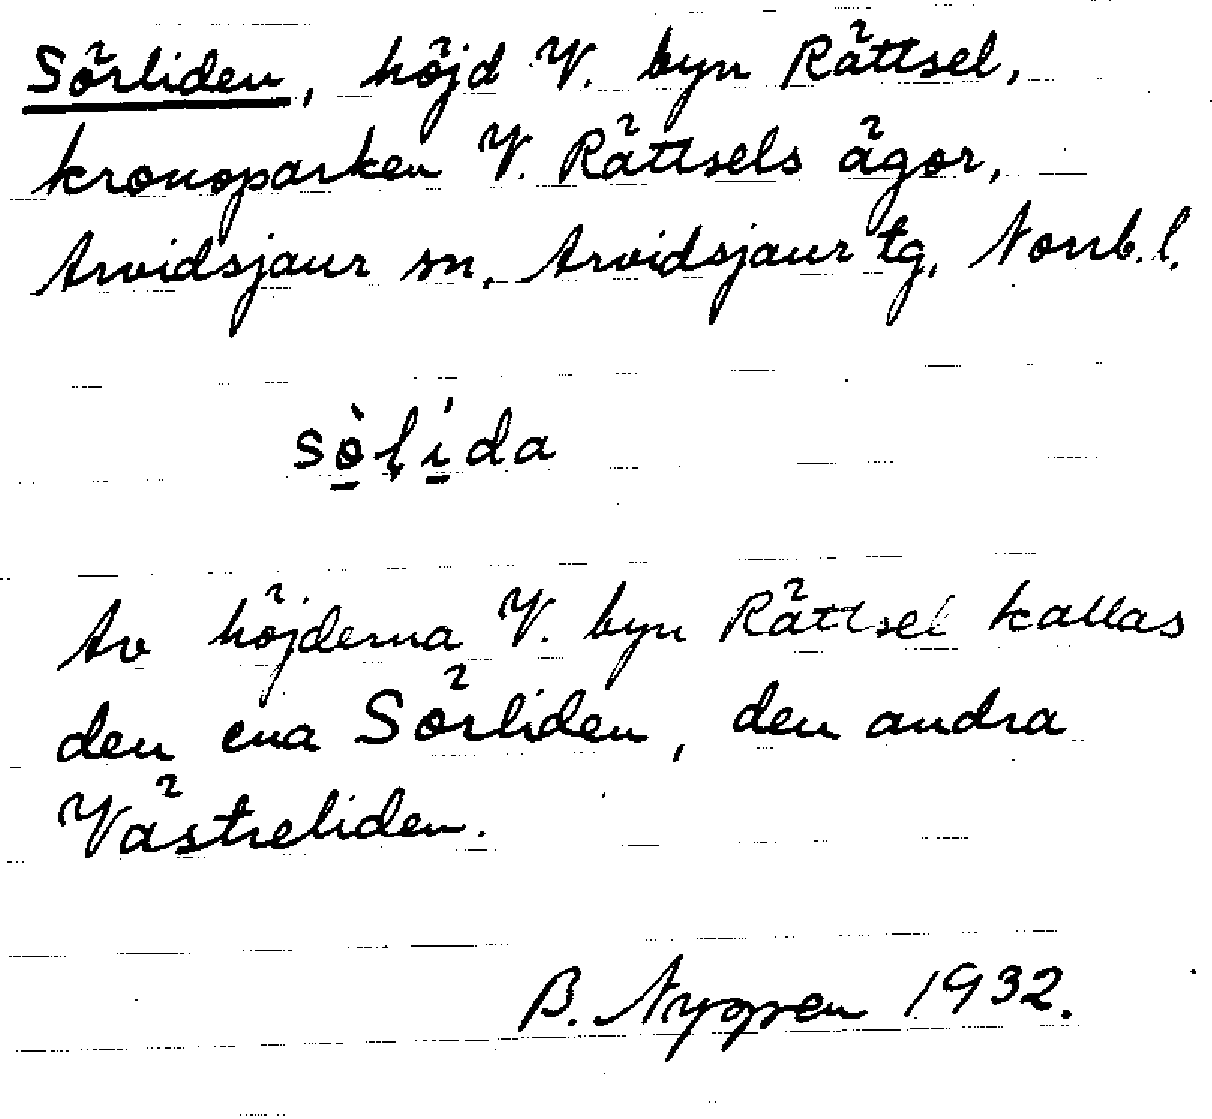 Sörliden, höjd V. byn Rättsel,
kronoparken V. Rättsels ägor,
Arvidsjaur sn, Arvidsjaur tg, Norrb. l.
sò̠ɭí̠da
Av höjderna V. byn Rättsel kallas
den ena Sörliden, den andra
Västreliden.
B. Nygren 1932.